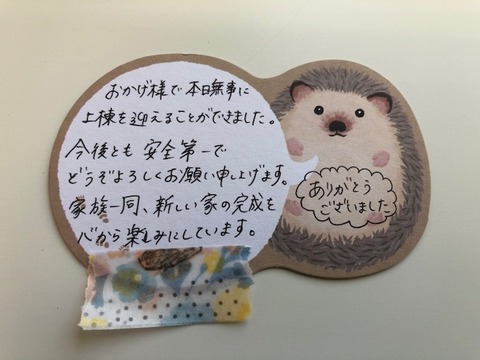 おかげ様で本日無事に
上棟を迎えることができました。
今後とも安全第一で
どうぞよろしくお願い申し上げます。
家族一同、新しい家の完成を
心から楽しみにしています。
ありがとう
ございました